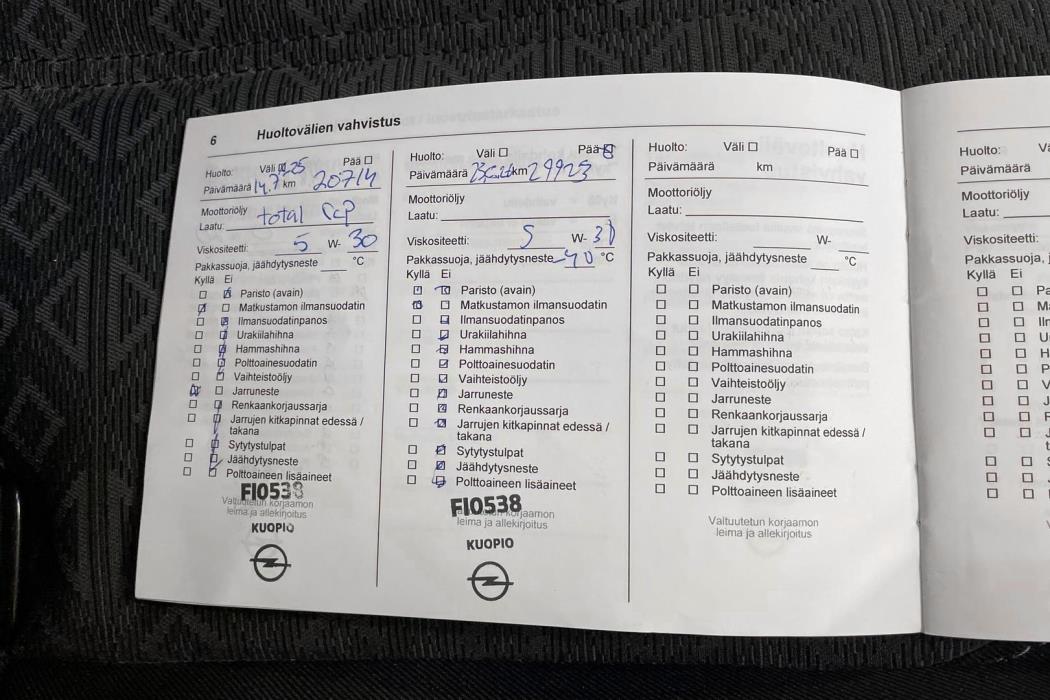 6 Huoltovälien vahvistus
Huolto: Väli Pää
Päivämäärä 14.7 km 20714
Moottoriöljy
Laatu: total
Viskositeetti: 5 W- 30
Pakkassuoja, jäähdytysneste °C
Kyllä Ei
Paristo (avain)
Matkustamon ilmansuodatin
Ilmansuodatinpanos
Urakiilahihna
Hammashihna
Polttoainesuodatin
Vaihteistoöljy
Jarruneste
Renkaankorjaussarja
Jarrujen kitkapinnat edessä /
takana
Sytytystulpat
Jäähdytysneste
Polttoaineen lisäaineet
FI0538
Valtuutetun korjaamon
leima ja allekirjoitus
KUOPIO
Huolto: Väli Pää
Päivämäärä km 29923
Moottoriöljy
Laatu:
Viskositeetti: 5 W- 30
Pakkassuoja, jäähdytysneste -40 °C
Kyllä Ei
Paristo (avain)
Matkustamon ilmansuodatin
Ilmansuodatinpanos
Urakiilahihna
Hammashihna
Polttoainesuodatin
Vaihteistoöljy
Jarruneste
Renkaankorjaussarja
Jarrujen kitkapinnat edessä /
takana
Sytytystulpat
Jäähdytysneste
Polttoaineen lisäaineet
FI0538
korjaamon
leima ja allekirjoitus
KUOPIO
Huolto: Väli Pää
Päivämäärä km
Moottoriöljy
Laatu:
Viskositeetti: W-
Pakkassuoja, jäähdytysneste °C
Kyllä Ei
Paristo (avain)
Matkustamon ilmansuodatin
Ilmansuodatinpanos
Urakiilahihna
Hammashihna
Polttoainesuodatin
Vaihteistoöljy
Jarruneste
Renkaankorjaussarja
Jarrujen kitkapinnat edessä /
takana
Sytytystulpat
Jäähdytysneste
Polttoaineen lisäaineet
Valtuutetun korjaamon
leima ja allekirjoitus
Huolto:
Päivämäärä
Moottoriöljy
Laatu:
Viskositeetti:
Pakkassuoja,
Kyllä Ei